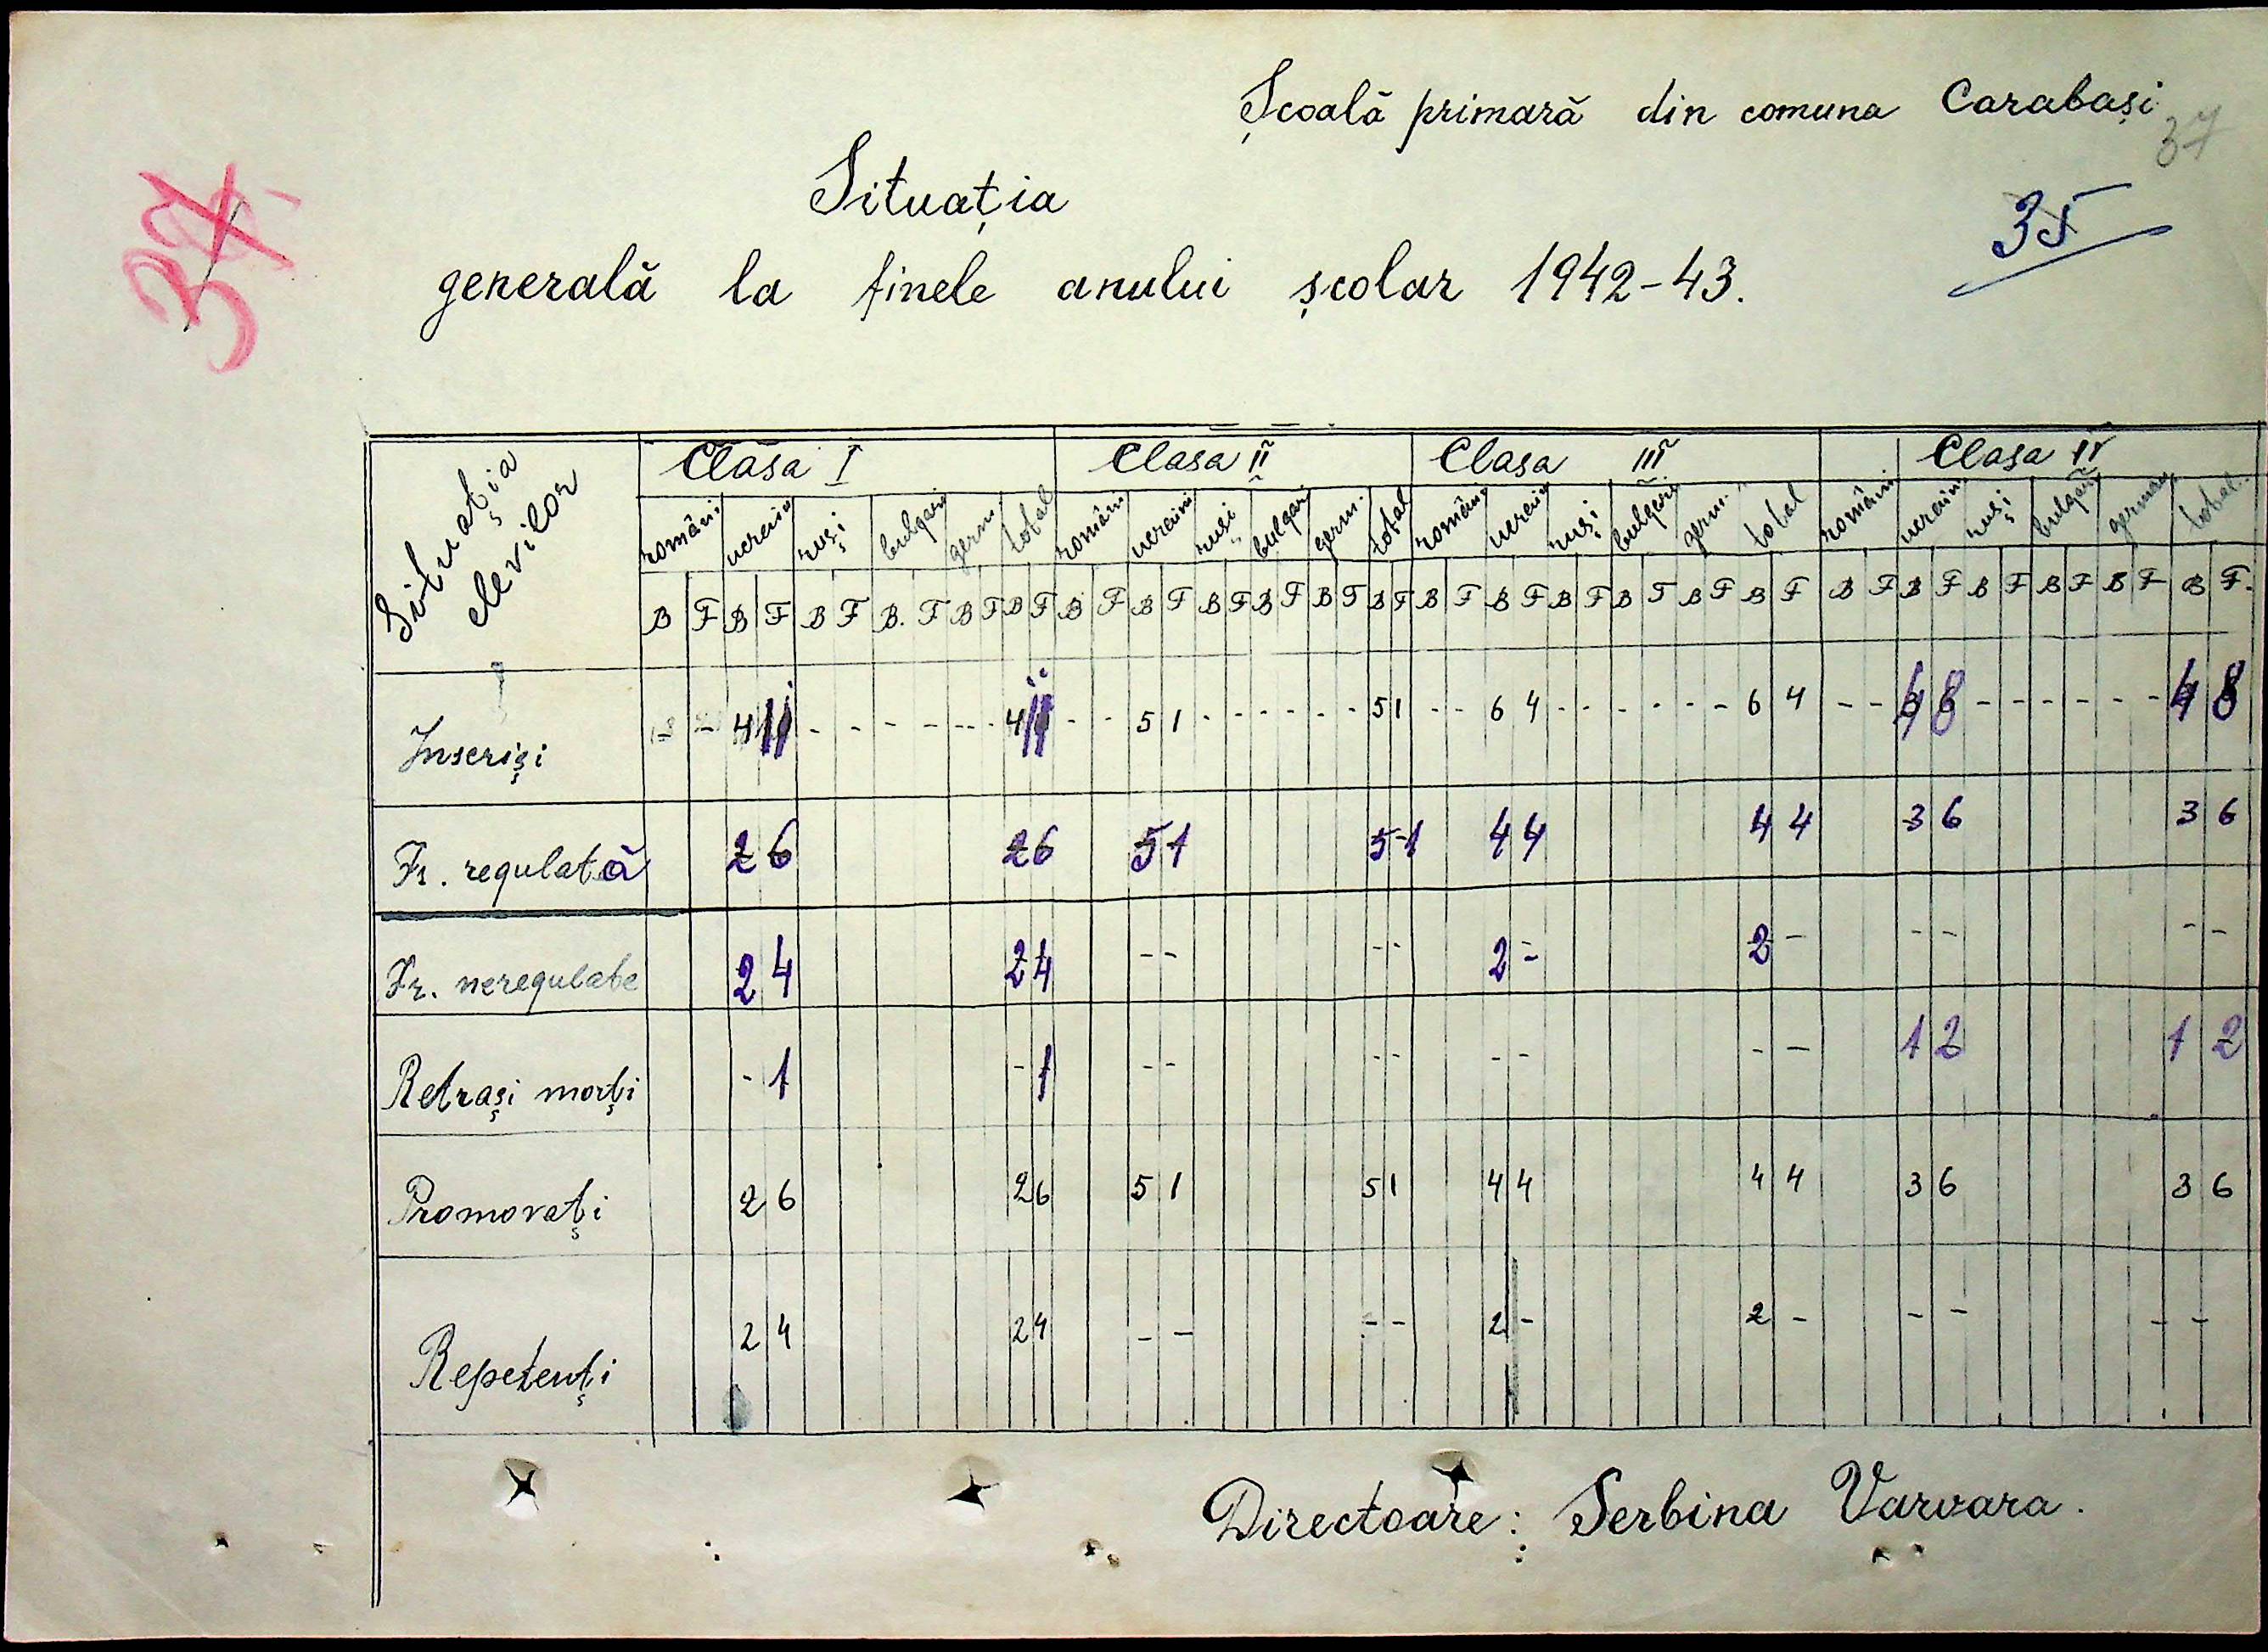 Școală primară din comuna Carabași
37
37
35
Situația
generală la finele anului școlar 1942-43.
Situația elevilor
Clasa I Clasa II Clasa III Clasa IV
români ucraini ruși bulgari germ. total români ucraini ruși bulgari germ. total români ucraini ruși bulgari germ. total români ucraini ruși bulgari german total
B F B F B F B. F B F B F B F B F B F B F B F B F B F B F B F B F B F B F B F B F B F B F B F B F.
Înscriși - - 4 11 - - - - - - 4 11 - - 5 1 - - - - - - 5 1 - - 6 4 - - - - - - 6 4 - - 4 8 - - - - - - 4 8
Fr. regulată 2 6 2 6 5 1 5 1 4 4 4 4 3 6 3 6
Fr. neregulate 2 4 2 4 - - - - 2 - 2 - - - - -
Retrași morți - 1 - 1 - - - - - - - - 1 2 1 2
Promovați 2 6 2 6 5 1 5 1 4 4 4 4 3 6 3 6
Repetenți 2 4 2 4 - - - - 2 - 2 - - - - -
Directoare: Serbina Varvara.